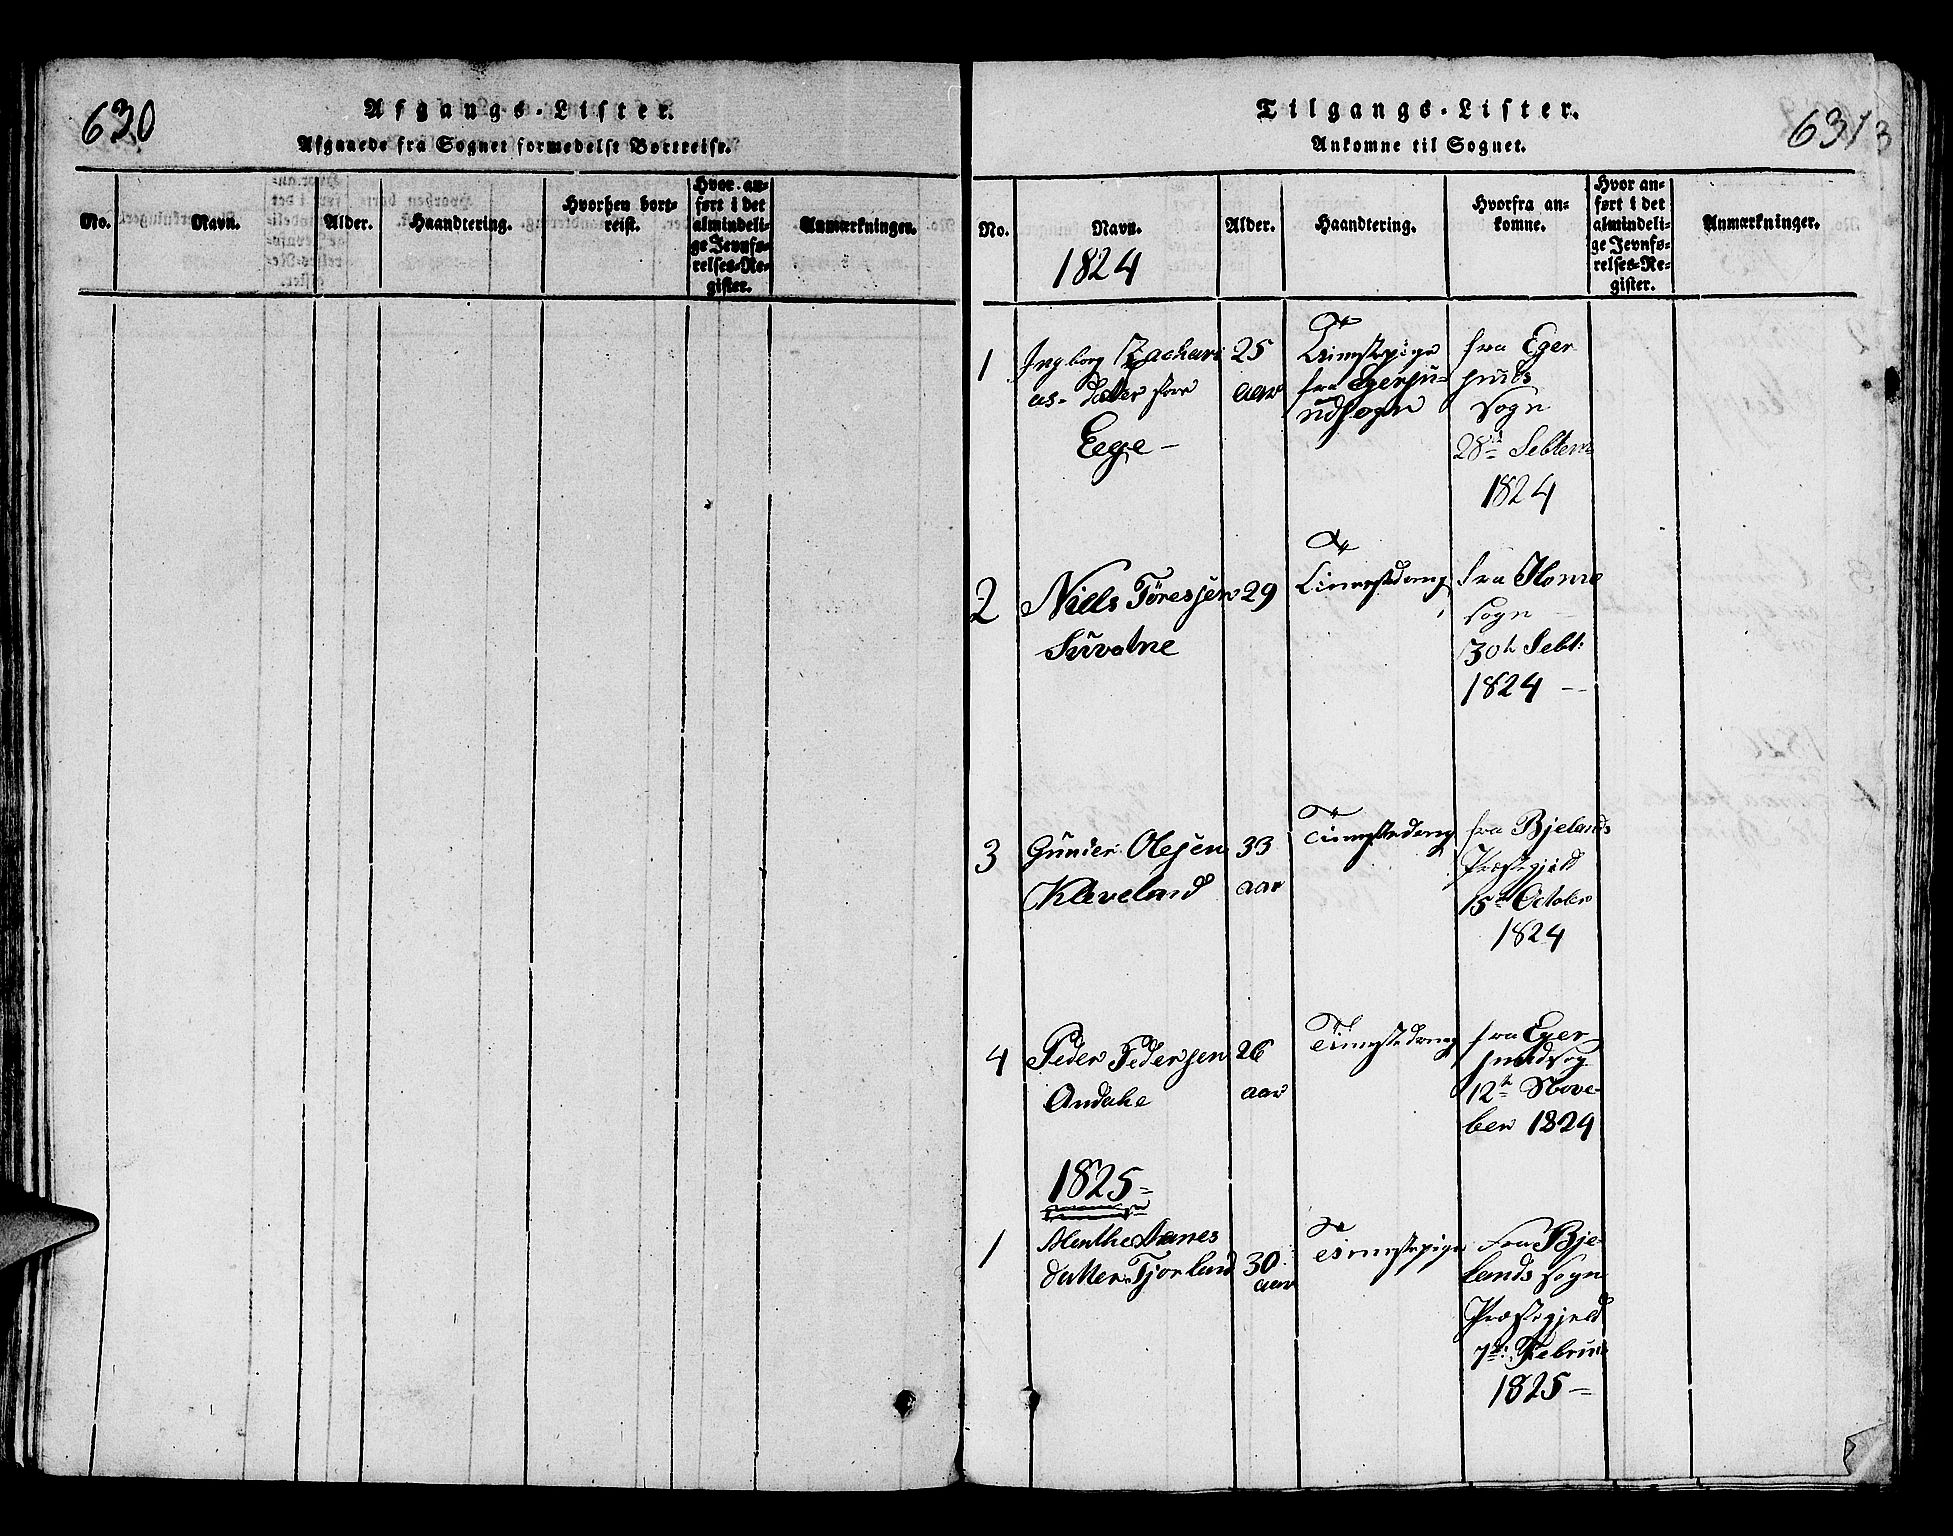 630
Afgangs-Lister.
Afgaaede fra Sognet formedelst Bortreise.
No.
Navn.
Alder.
Haandtering.
Hvorhen bort-
reist.
Hvor an-
ført i det
almindeli-
ge Jevnfø-
relses-Re-
gister.
Anmærkninger.
Tilgangs-Lister.
631
3
Ankomne til Sognet.
No.
Navn.
1824
Alder.
Haandtering.
Hvorfra an-
komne.
Hvor an-
ført i det
almindeli-
ge Jevnfø-
relses-Re-
gister.
Anmærkninger.
1
Ingborg Zachari
as- datter store
Eege -
25
aar
Tienestepige
fra Egersu-
ndsogn
fra Eger
sunds
Sogn
28de Sebtem
1824
2
Niels Tøresen
Sürvatne
29
Tienestedreng
fra Home
sogn
30t Sebt:
1824 -
3
Günder Olesen
Kleveland
33
aar
Tienestedreng
fra Bjelands
Præstegjeld
15de October
1824
4
Peder Pedersen
Andahe
26
aar
Tienestedreng
fra Eger
sundsog
12te Nove-
ber 1824
1825 =
1
Menthe Aanes
datter Tjorland
30
aar
Tienestepige
fra Bje-
lands sogn
Præstegjeld
7de Februa
1825 -